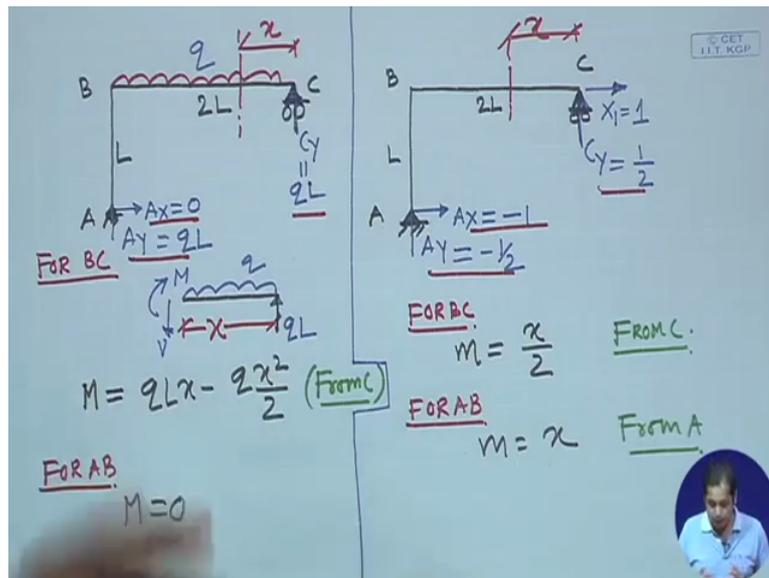 © CET
I.I.T. KGP
x
q
B
C
2L
L
Cy
=
qL
A
Ax=0
Ay = qL
FOR BC
M
q
x
qL
V
M = qLx - qx²/2 (From C)
FOR AB
M = 0
x
C
B
2L
X₁=1
L
Cy = 1/2
A
Ax = -1
Ay = -1/2
FOR BC.
m = x/2
FROM C.
FOR AB
m = x
From A